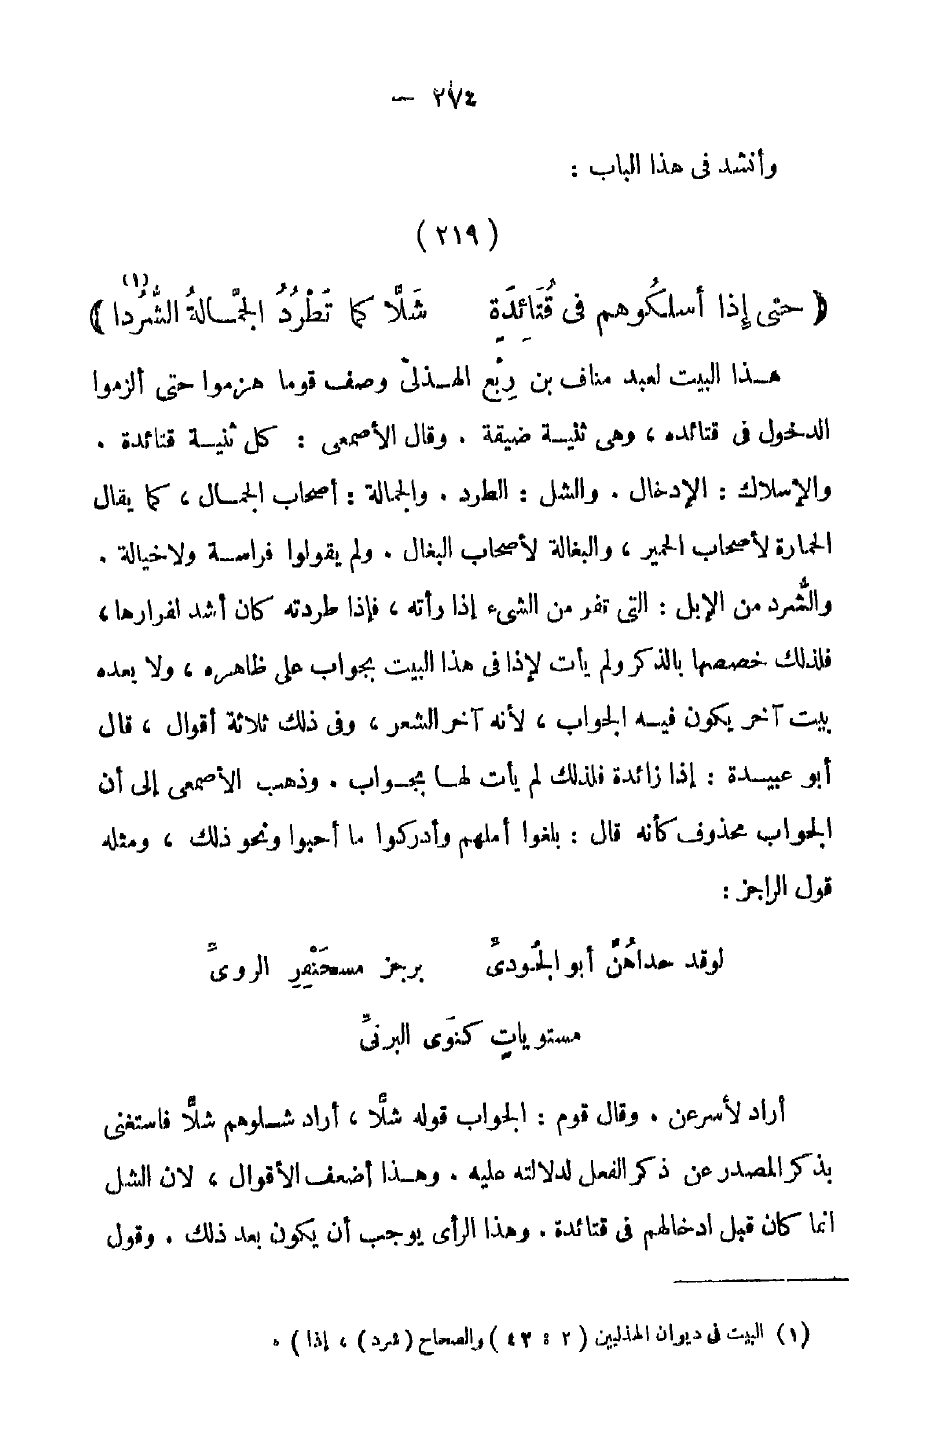 — ٢٧٤
وأنشد فى هذا الباب :
( ٢١٩ )
﴿ حتى إذا أسلكُوهم فى قُتَائِدَةٍ شَلًّا كما تَطْرُدُ الجَمَّـالةُ الشُّرُدا ﴾ (١)
هـذا البيت لعبد مناف بن رِبْع الهـذلىّ وصف قوما هزموا حتى ألزموا
الدخول فى قتائده ، وهى ثنيـة ضيقة . وقال الأصمعى : كل ثنيـة قتائدة .
والإسلاك : الإدخال . والشل : الطرد . والجمالة : أصحاب الجمـال ، كما يقال
الحمارة لأصحاب الحمير ، والبغالة لأصحاب البغال . ولم يقولوا فراسـة ولاخيالة .
والشُّرد من الإبل : التى تفر من الشىء إذا رأته ، فإذا طردته كان أشد لفرارها ،
فلذلك خصصها بالذكر ولم يأت لإذا فى هذا البيت بجواب على ظاهره ، ولا بعده
بيت آخر يكون فيـه الجواب ، لأنه آخر الشعر ، وفى ذلك ثلاثة أقوال ، قال
أبو عبيـدة : إذا زائدة فلذلك لم يأت لهـا بجـواب . وذهب الأصمعى إلى أن
الجواب محذوف كأنه قال : بلغوا أملهم وأدركوا ما أحبوا ونحو ذلك ، ومثله
قول الراجز :
لوقد حداهُنَّ أبو الجُودىِّ برجز مسحَنْفِرِ الروىِّ
مستوياتٍ كنوَى البرنىِّ
أراد لأسرعن . وقال قوم : الجواب قوله شلًّا ، أراد شـلوهم شلًّا فاستغنى
بذكر المصدر عن ذكر الفعل لدلالته عليه . وهـذا أضعف الأقوال ، لان الشل
انما كان قبل ادخالهم فى قتائدة . وهذا الرأى يوجب أن يكون بعد ذلك . وقول
(١) البيت فى ديوان الهذليين ( ٢ : ٤٣ ) والصحاح ( شرد ) ، إذا ) .